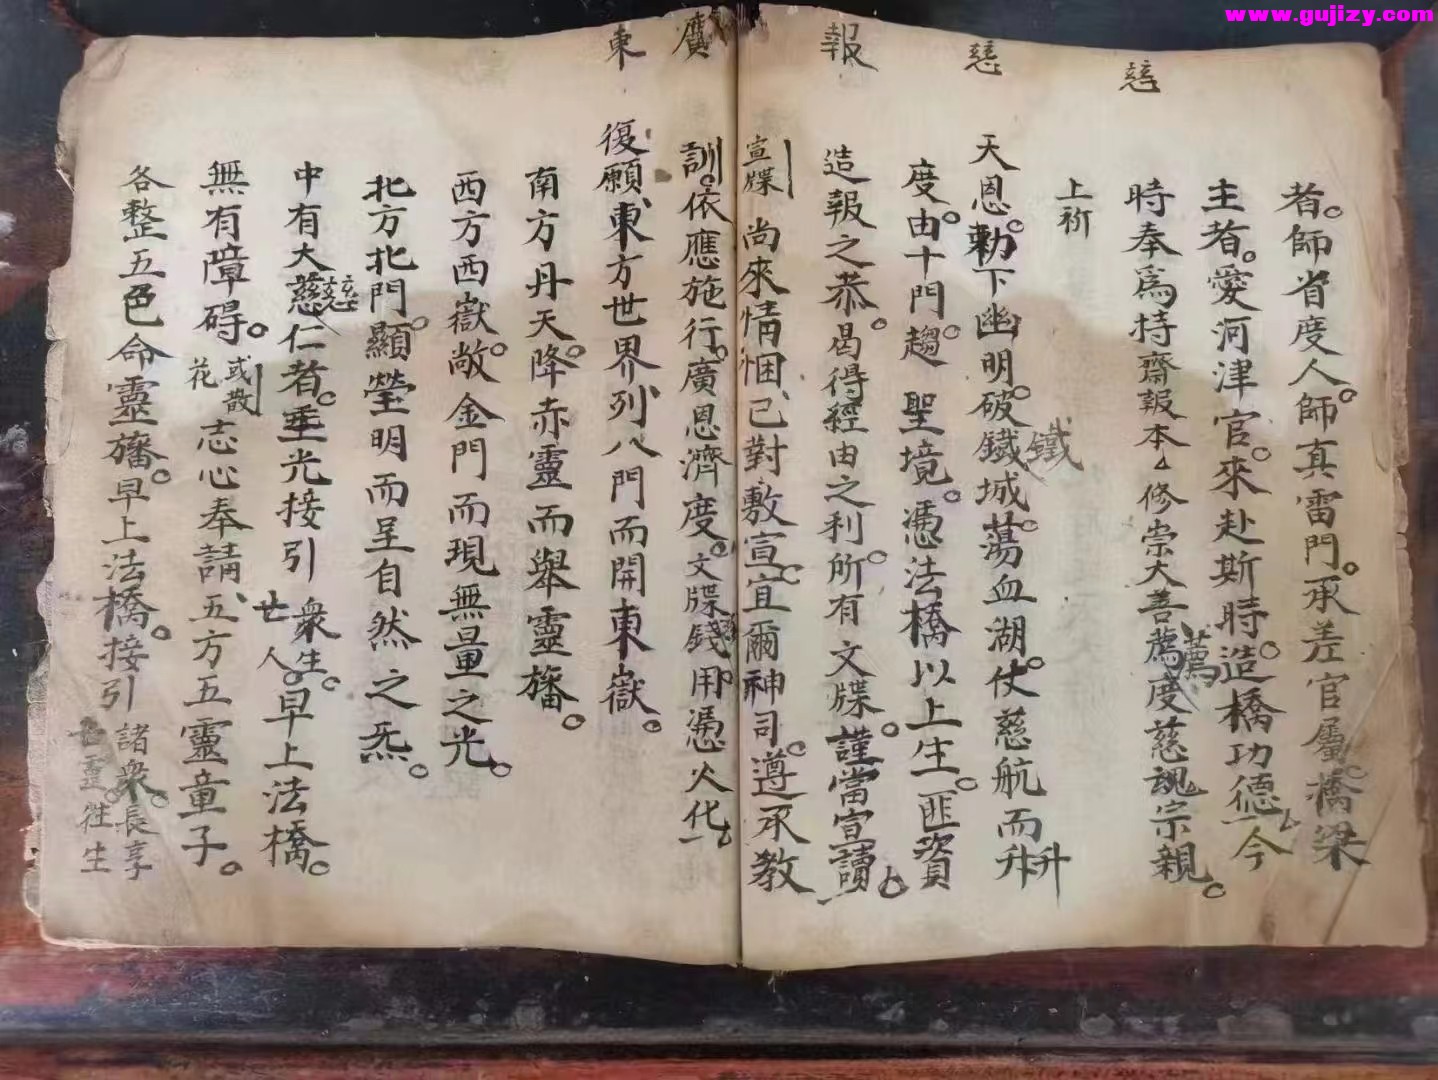 www.gujizy.com
慈
慈
報
廣
東
者。師省度人。師真雷門。承差官屬。橋梁
主者。愛河津官。來赴斯時。造橋功德。今
時奉為持齋報本 修崇大善薦度慈魂宗親。
薦
上祈
天恩。勅下幽明。破鐵城。蕩血湖。仗慈航而升
鐵
升
度。由十門。趨 聖境。憑法橋以上生。匪資
造報之恭。曷得經由之利。所有文牒。謹當宣讀
宣牒 尚來情悃、已對敷宣。宜爾神司。遵承教
訓。依應施行。廣恩濟度。文牒錢用憑火化
復願、東方世界、列八門而開東嶽。
南方丹天。降赤靈而舉靈旛。
西方西嶽。敞金門而現無量之光。
北方北門。顯瑩明而呈自然之炁。
中有大慈仁者。垂光接引 衆生。亡人。早上法橋。
慈
無有障碍。或散花 志心奉請、五方五靈童子。
各整五色命靈旛。早上法橋。接引 諸衆。長享
亡靈。往生